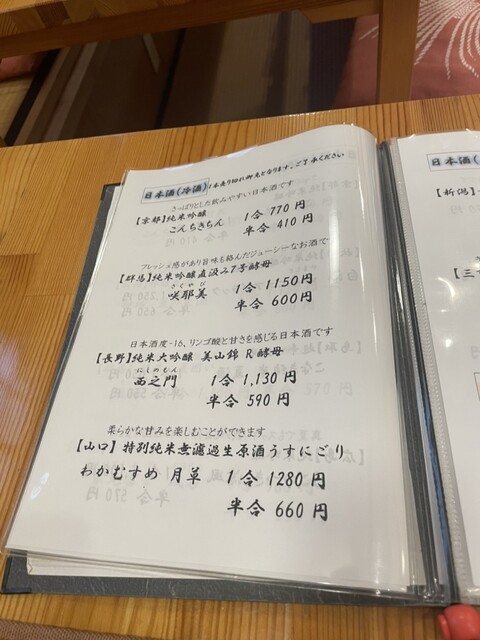 日本酒(冷酒) 1本売り切れ御免となります。ご了承ください
さっぱりとした飲みやすい日本酒です
【京都】純米吟醸
こんちきちん 1合 770 円
半合 410 円
フレッシュ感があり旨味も絡んだジューシーなお酒で
【群馬】純米吟醸直汲み7号酵母
さくやび
咲耶美 1合 1150 円
半合 600 円
日本酒度-16、リンゴ酸と甘きを感じる日本酒です
【長野】純米大吟醸 美山錦 R酵母
にしのもん
西之門 1合 1,130 円
半合 590 円
柔らかな甘みを楽しむことができます
【山口】特別純米無濾過生原酒うすにごり
わかむすめ 月草 1合 1280 円
半合 660 円
日本酒(
【新潟】
【三